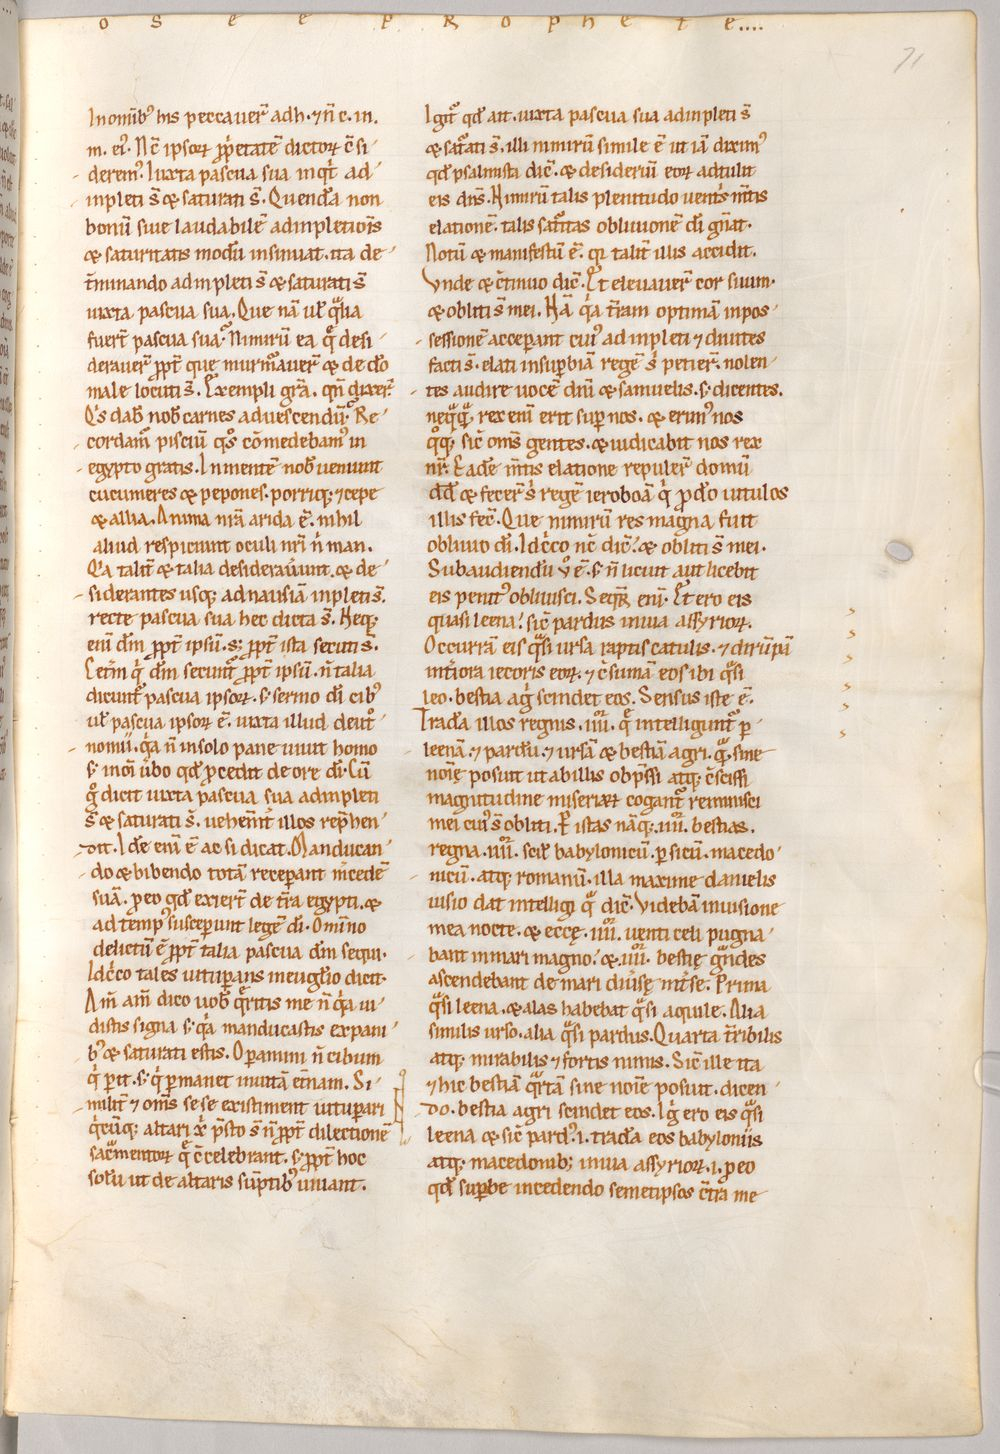 osee prophete....
71
In omib᷒ his peccauer̄ adh. ⁊ n̄ c. in.
m. ei᷒. Nc̄ ipsoꝝ ꝓp̄etatē dictoꝝ c̄si
derem᷒. Iuxta pascua sua inqͥt ad
inpleti s̄ & saturati s̄. Quenda non
bonū siue laudabilē adinpletiois
& saturitatis modū insinuat. ita de
t̄minando adinpleti s̄ & saturati s̄
iuxta pascua sua. Que nā uł qͣlia
fuer̄t pascua sua? Nimirū ea q̄ desi
derauer̄ ꝓpt̄ que murmͣuer̄ & de do
male locuti s̄. Exempli gr̄a. qn̄ dixer̄
Qͥs dab nob carnes aduescendū. Re
cordam᷒ pisciū qͦs comedebam᷒ in
egypto gratis. In mentē nob ueniunt
cucumeres & pepones. porriqꝫ ⁊ cepe
& allia. Anima nr̄a arida ē. nihil
aliud respiciunt oculi nr̄i nͥ man.
Qͥa talit̄ & talia desiderauunt. & de
siderantes usqꝫ ad nausiā inpleti s̄.
recte pascua sua hec dicta s̄. Neqꝫ
enī dm̄ ꝓpt̄ ipsū. sꝫ ꝓpt̄ ista secuti s̄.
Cet̄m qͥ dm̄ secunt᷒ ꝓpt̄ ipsū. n̄ talia
dicunt᷒ pascua ipsoꝝ. s᷒ sermo di cib᷒
uł pascua ipsoꝝ ē. iuxta illud deut᷒
nomii. qͥa n̄ in solo pane uiuit homo
s᷒ in om̄i ūbo qd ꝓcedit de ore di. Cū
gͦ dicit iuxta pascua sua adinpleti
s̄ & saturati s̄. uehem̄t᷒ illos rep̄hen
dit. Ide enī ē ac si dicat. Manducan
do & bibendo totā receperant m̄cedē
suā. ꝓ eo qd exier̄t de t̄ra egypti. &
ad temp᷒ susceperunt legē di. Om̄ino
delictū ē ꝓpt̄ talia pascua dm̄ sequi.
Idcͥco tales uituꝑans in euglio dicit.
Am̄ am̄ dico uob qͣeritis me n̄ qͥa ui
distis signa s᷒ qͥa manducastis ex pani
b᷒ & saturati estis. Operamini n̄ cibum
qͥ ꝑit. s᷒ qͥ ꝑmanet in uitā et̄nam. Si
milit̄ ⁊ om̄s se se existiment uituꝑari
qͥcūqꝫ altari xͥ p̄sto s̄ n̄ ꝓpt̄ dilectionē
sacͣmentoꝝ q̄ c̄celebrant. s᷒ ꝓpt̄ hoc
solū ut de altaris sūptib᷒ uiuant.
Igit᷒ qd ait. iuxta pascua sua adinpleti s̄
& satͣati s̄. illi nimirū simile ē ut iā dixim᷒
qd psalmista dic̄. & desideriū eoꝝ adtulit
eis dn̄s. Nimirū talis plenitudo uentͥs m̄tis
elationē. talis satͣitas obliuionē di gn̄at.
Notū & manifestū ē. qꝫ talit̄ illis accidit.
Vnde & c̄tinuo dic̄. Et eleuauer̄ cor suum.
& obliti s̄ mei. Nā qͥa t̄ram optimā in pos
sessionē acceperant cui᷒ adinpleti ⁊ diuites
facti s̄. elati in suꝑbiā regē sͥ petier̄. nolen
tes audire uocē dnī & samuelis. s᷒ dicentes.
neqͣqͣ. rex enī erit sup nos. & erim᷒ nos
qͦqꝫ sic̄ om̄s gentes. & iudicabit nos rex
nr̄. Eade m̄tis elatione repuler̄ domū
dd & fecer̄ sͥ regē ieroboā qͥ ꝓ do uitulos
illis fec̄. Que nimirū res magna fuit
obliuio di. Idcͥco nc̄ dic̄. & obliti s̄ mei.
Subaudiendū uͦ ē. s᷒ n̄ licuit aut licebit
eis penit᷒ obliuisci. Seqͥt᷒ enī. Et ero eis
quasi leena. sic̄ pardus in uia assyrioꝝ.
Occurrā eis qͣsi ursa raptis catulis. ⁊ dirūpā
int̄iora iecoris eoꝝ. ⁊ c̄sumā eos ibi qͣsi
leo. bestia agͥ scindet eos. Sensus iste ē.
Trada illos regnis. iiii. q̄ intelligunt᷒ ꝑ
leenā. ⁊ pardū. ⁊ ursā & bestiā agri. qͣ sine
noīe posuit ut ab illis obp̄ssi atqꝫ c̄scissi
magnitudine miseriaꝝ cogant᷒ reminisci
mei cui᷒ s̄ obliti. ꝑ istas nāqꝫ. iiii. bestias.
regna. iiii. scił babylonicū. ꝑsicū. macedo
nicū. atqꝫ romanū. illa maxime danielis
uisio dat intelligi qͣ dic̄. Videbā in uisione
mea nocte. & ecce. iiii. uenti celi pugna
bant in mari magno. & .iiii. bestie gͣndes
ascendebant de mari diūse int̄ se. Prima
qͣsi leena. & alas habebat qͣsi aquile. Alia
similis urso. alia qͣsi pardus. Quarta t̄ribilis
atqꝫ mirabilis ⁊ fortis nimis. Sic̄ ille ita
⁊ hic bestiā qͣrtā sine noīe posuit. dicen
do. bestia agri scindet eos. Igͥ ero eis qͣsi
leena & sic̄ pard᷒. i. trada eos babyloniis
atqꝫ macedonibꝫ in uia assyrioꝝ. i. ꝓ eo
qd suꝑbe incedendo semetipsos c̄tra me